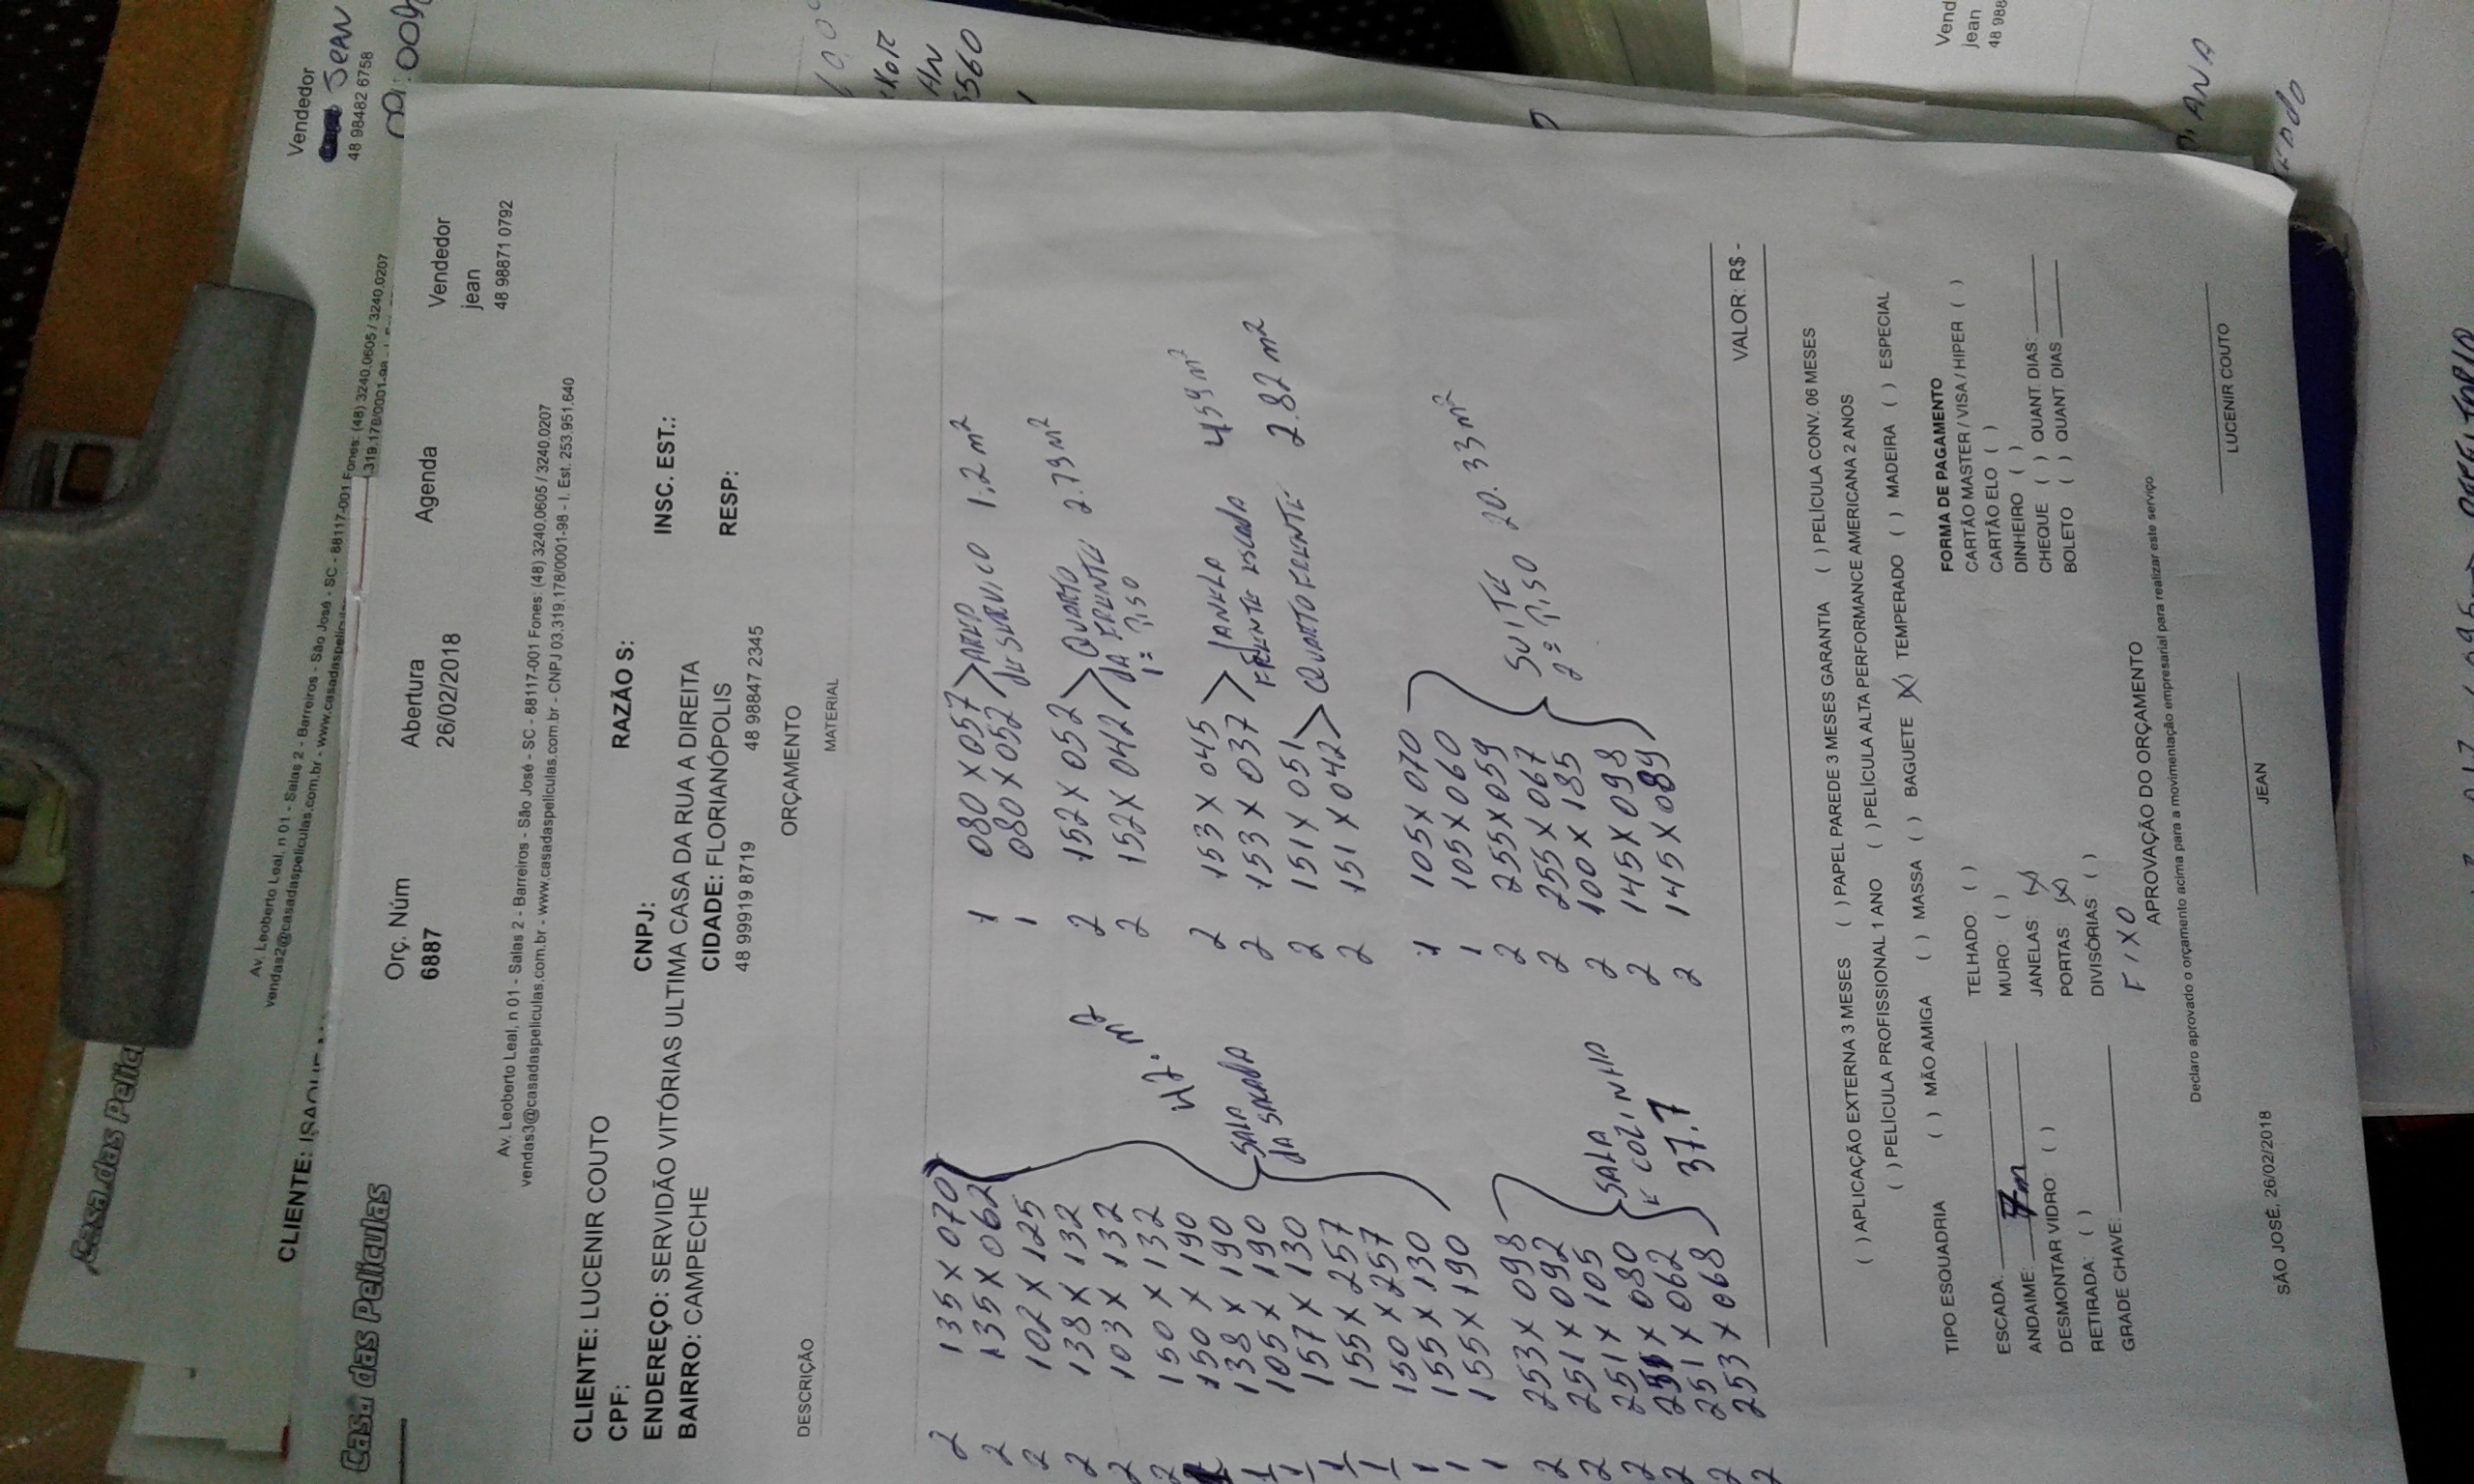 Vendedor
JEAN
48 98482 6758
Av. Leoberto Leal, n 01 - Salas 2 - Barreiros - São José - SC - 88117-001 Fones: (48) 3240.0605 / 3240.0207
Casa das Pelic
CLIENTE:
Casa das Películas
Orç. Núm
6887
Abertura
26/02/2018
Agenda
Vendedor
jean
48 98871 0792
Av. Leoberto Leal, n 01 - Salas 2 - Barreiros - São José - SC - 88117-001 Fones: (48) 3240.0605 / 3240.0207
vendas3@casadaspeliculas.com.br - www.casadaspeliculas.com.br - CNPJ 03.319.178/0001-98 - I. Est. 253.951.640
CLIENTE: LUCENIR COUTO RAZÃO S:
CPF: CNPJ: INSC. EST.:
ENDEREÇO: SERVIDÃO VITÓRIAS ULTIMA CASA DA RUA A DIREITA
BAIRRO: CAMPECHE CIDADE: FLORIANÓPOLIS RESP:
48 99919 8719 48 98847 2345
ORÇAMENTO
DESCRIÇÃO MATERIAL
2 135 x 070
2 135 x 062
2 102 x 125
2 138 x 132
2 103 x 132
2 150 x 132
150 x 190
1 138 x 190
1 105 x 190
1 157 x 130
1 155 x 257
1 150 x 257
1 155 x 130
1 155 x 190
SALA
DA SACADA
2 253 x 098
2 251 x 092
2 251 x 105
2 251 x 080
2 251 x 062
2 253 x 068
SALA
E COZINHA
37.7
1 080 x 057
1 080 x 052
AREA
DE SERVICO 1,2 m²
2 152 x 052
2 152 x 042
QUARTO
DA FRENTE 2.79 m²
1º PISO
2 153 x 045
2 153 x 037
JANELA
FRENTE ESCADA
2 151 x 051
2 151 x 042
QUARTO FRENTE 2.82 m²
1 105 x 070
1 105 x 060
2 255 x 059
2 255 x 067
2 100 x 185
2 145 x 098
2 145 x 089
SUITE
2º PISO 20.33 m²
VALOR: R$ -
( ) APLICAÇÃO EXTERNA 3 MESES ( ) PAPEL PAREDE 3 MESES GARANTIA ( ) PELÍCULA CONV. 06 MESES
( ) PELÍCULA PROFISSIONAL 1 ANO ( ) PELÍCULA ALTA PERFORMANCE AMERICANA 2 ANOS
TIPO ESQUADRIA ( ) MÃO AMIGA ( ) MASSA ( ) BAGUETE (X) TEMPERADO ( ) MADEIRA ( ) ESPECIAL
ESCADA:
ANDAIME: 7m
DESMONTAR VIDRO: ( )
RETIRADA: ( )
GRADE CHAVE:
TELHADO: ( )
MURO: ( )
JANELAS: (X)
PORTAS: (X)
DIVISÓRIAS: ( )
FIXO
FORMA DE PAGAMENTO
CARTÃO MASTER / VISA / HIPER ( )
CARTÃO ELO ( )
DINHEIRO ( )
CHEQUE ( ) QUANT. DIAS:
BOLETO ( ) QUANT. DIAS
APROVAÇÃO DO ORÇAMENTO
Declaro aprovado o orçamento acima para a movimentação empresarial para realizar este serviço
SÃO JOSÉ, 26/02/2018
JEAN
LUCENIR COUTO
Vend
jean
48 988